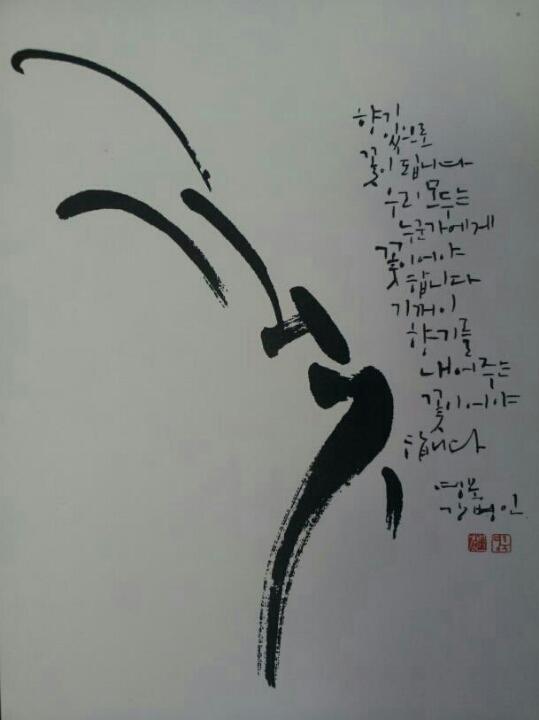 향기
있으므로
꽃이 됩니다
우리 모두는
누군가에게
꽃이어야
합니다
기꺼이
향기를
내어주는
꽃이어야
합니다
영묵
강병인